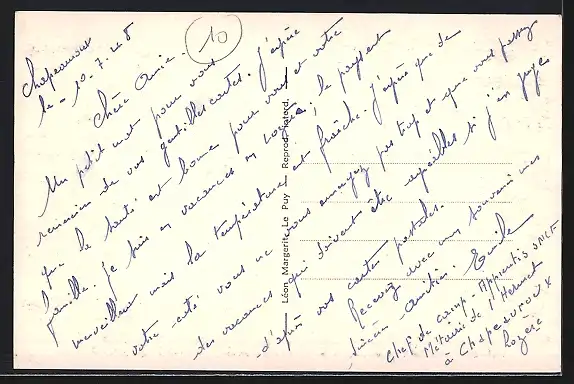 Chapeauroux
le - 10-7.48
10
Chère Amie.
Un petit mot pour vous
remercier de vos gentilles cartes. J'espère
que la santé est bonne pour vous et votre
famille. Je suis en vacances en Lozère, le paysage est
merveilleux mais la température est fraîche. J'espère que de
votre côté vous ne vous ennuyez pas trop et que vous passez
des vacances qui doivent être agréables si j'en juge
d'après vos cartes postales.
Recevez avec mes souvenirs mes
sincères amitiés. Emile
Chef de camp - Apprentis SNCF
Métairie de l'Hermet
à Chapeauroux
Lozère
Léon Margerit, Le Puy — Reprod. interd.